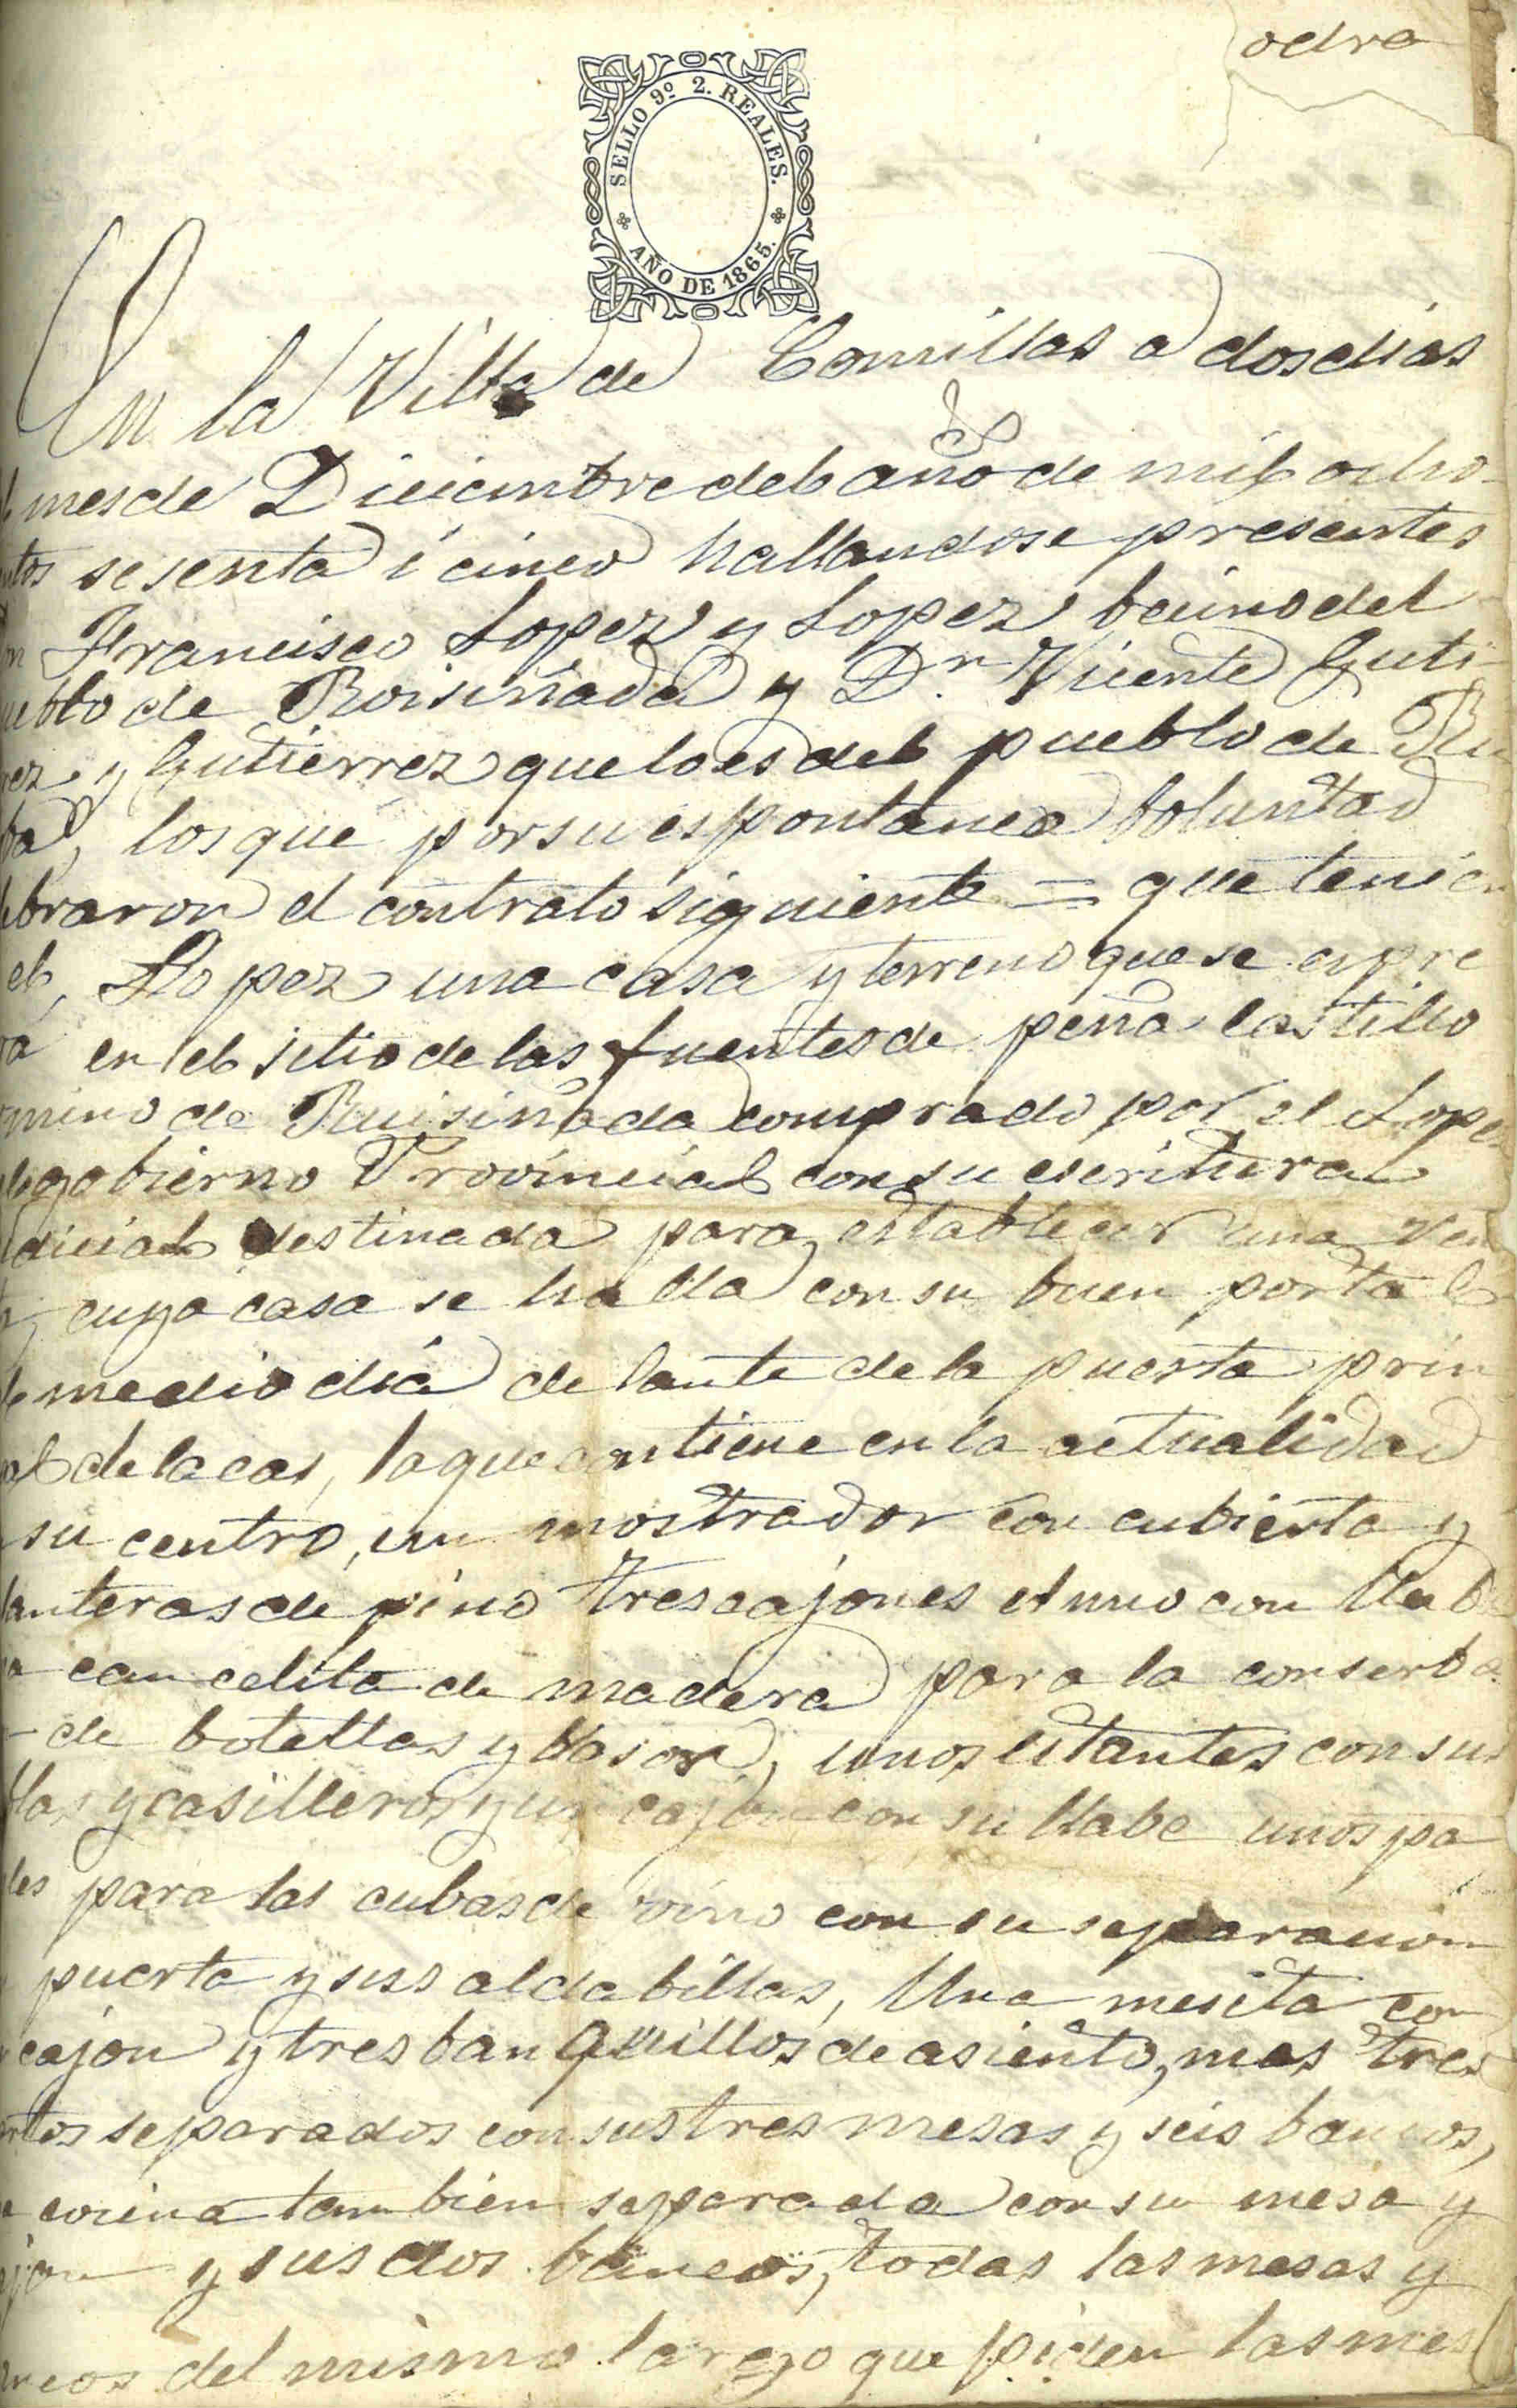 odra
SELLO 9º 2. REALES.
AÑO DE 1865.
En la Villa de Comillas a dos dias
l mes de Dicicimbre del año de mil ocho-
ntos sesenta i cinco hallandose presentes
on Francisco Lopez y Lopez becino del
ueblo de Roisiñada y Dn Vicente Guti-
rez y Gutierrez que lo es del pueblo de Ru
ba, los que por su espontanea boluntad
lebraron el contrato siguiente = que tenien
el, Lopez una casa y terreno que se expre
ra en el sitio de las fuentes de peña castillo
mino de Ruisiñada comprado por el Lope
gobierno Provincial con su escritura
dicial destinada para establecer una ven
cuya casa se halla con su buen portal
medio dia delante de la puerta prin
al de la cas, la que contiene en la actualidad
su centro, un mostrador con cubierta y
lanteras de pino tres cajones el uno con llabe
a cancelita de madera para la conserba
de botellas y basos, unos estantes con sus
blas y casilleros y un cajon con su llabe unos pa
les para las cubas de vino con su separacion
puerta y sus aldabillas, Una mesita con
cajon y tres banquillos de asiento, mas tres
rtos separados con sus tres mesas y seis bancos,
a cocina tambien separada con su mesa y
ajon y sus dos bancos, todas las mesas y
ancos del mismo largo que piden las mes